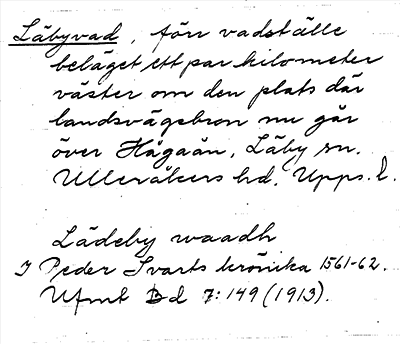 Läbyvad, förr vadställe
beläget ett par kilometer
väster om den plats där
landsvägsbron nu går
över Hågaån, Läby sn.
Ulleråkers hd. Upps. l.
Lädeby waadh
I Peder Svarts krönika 1561-62.
Ufmt Bd 7:149 (1913).